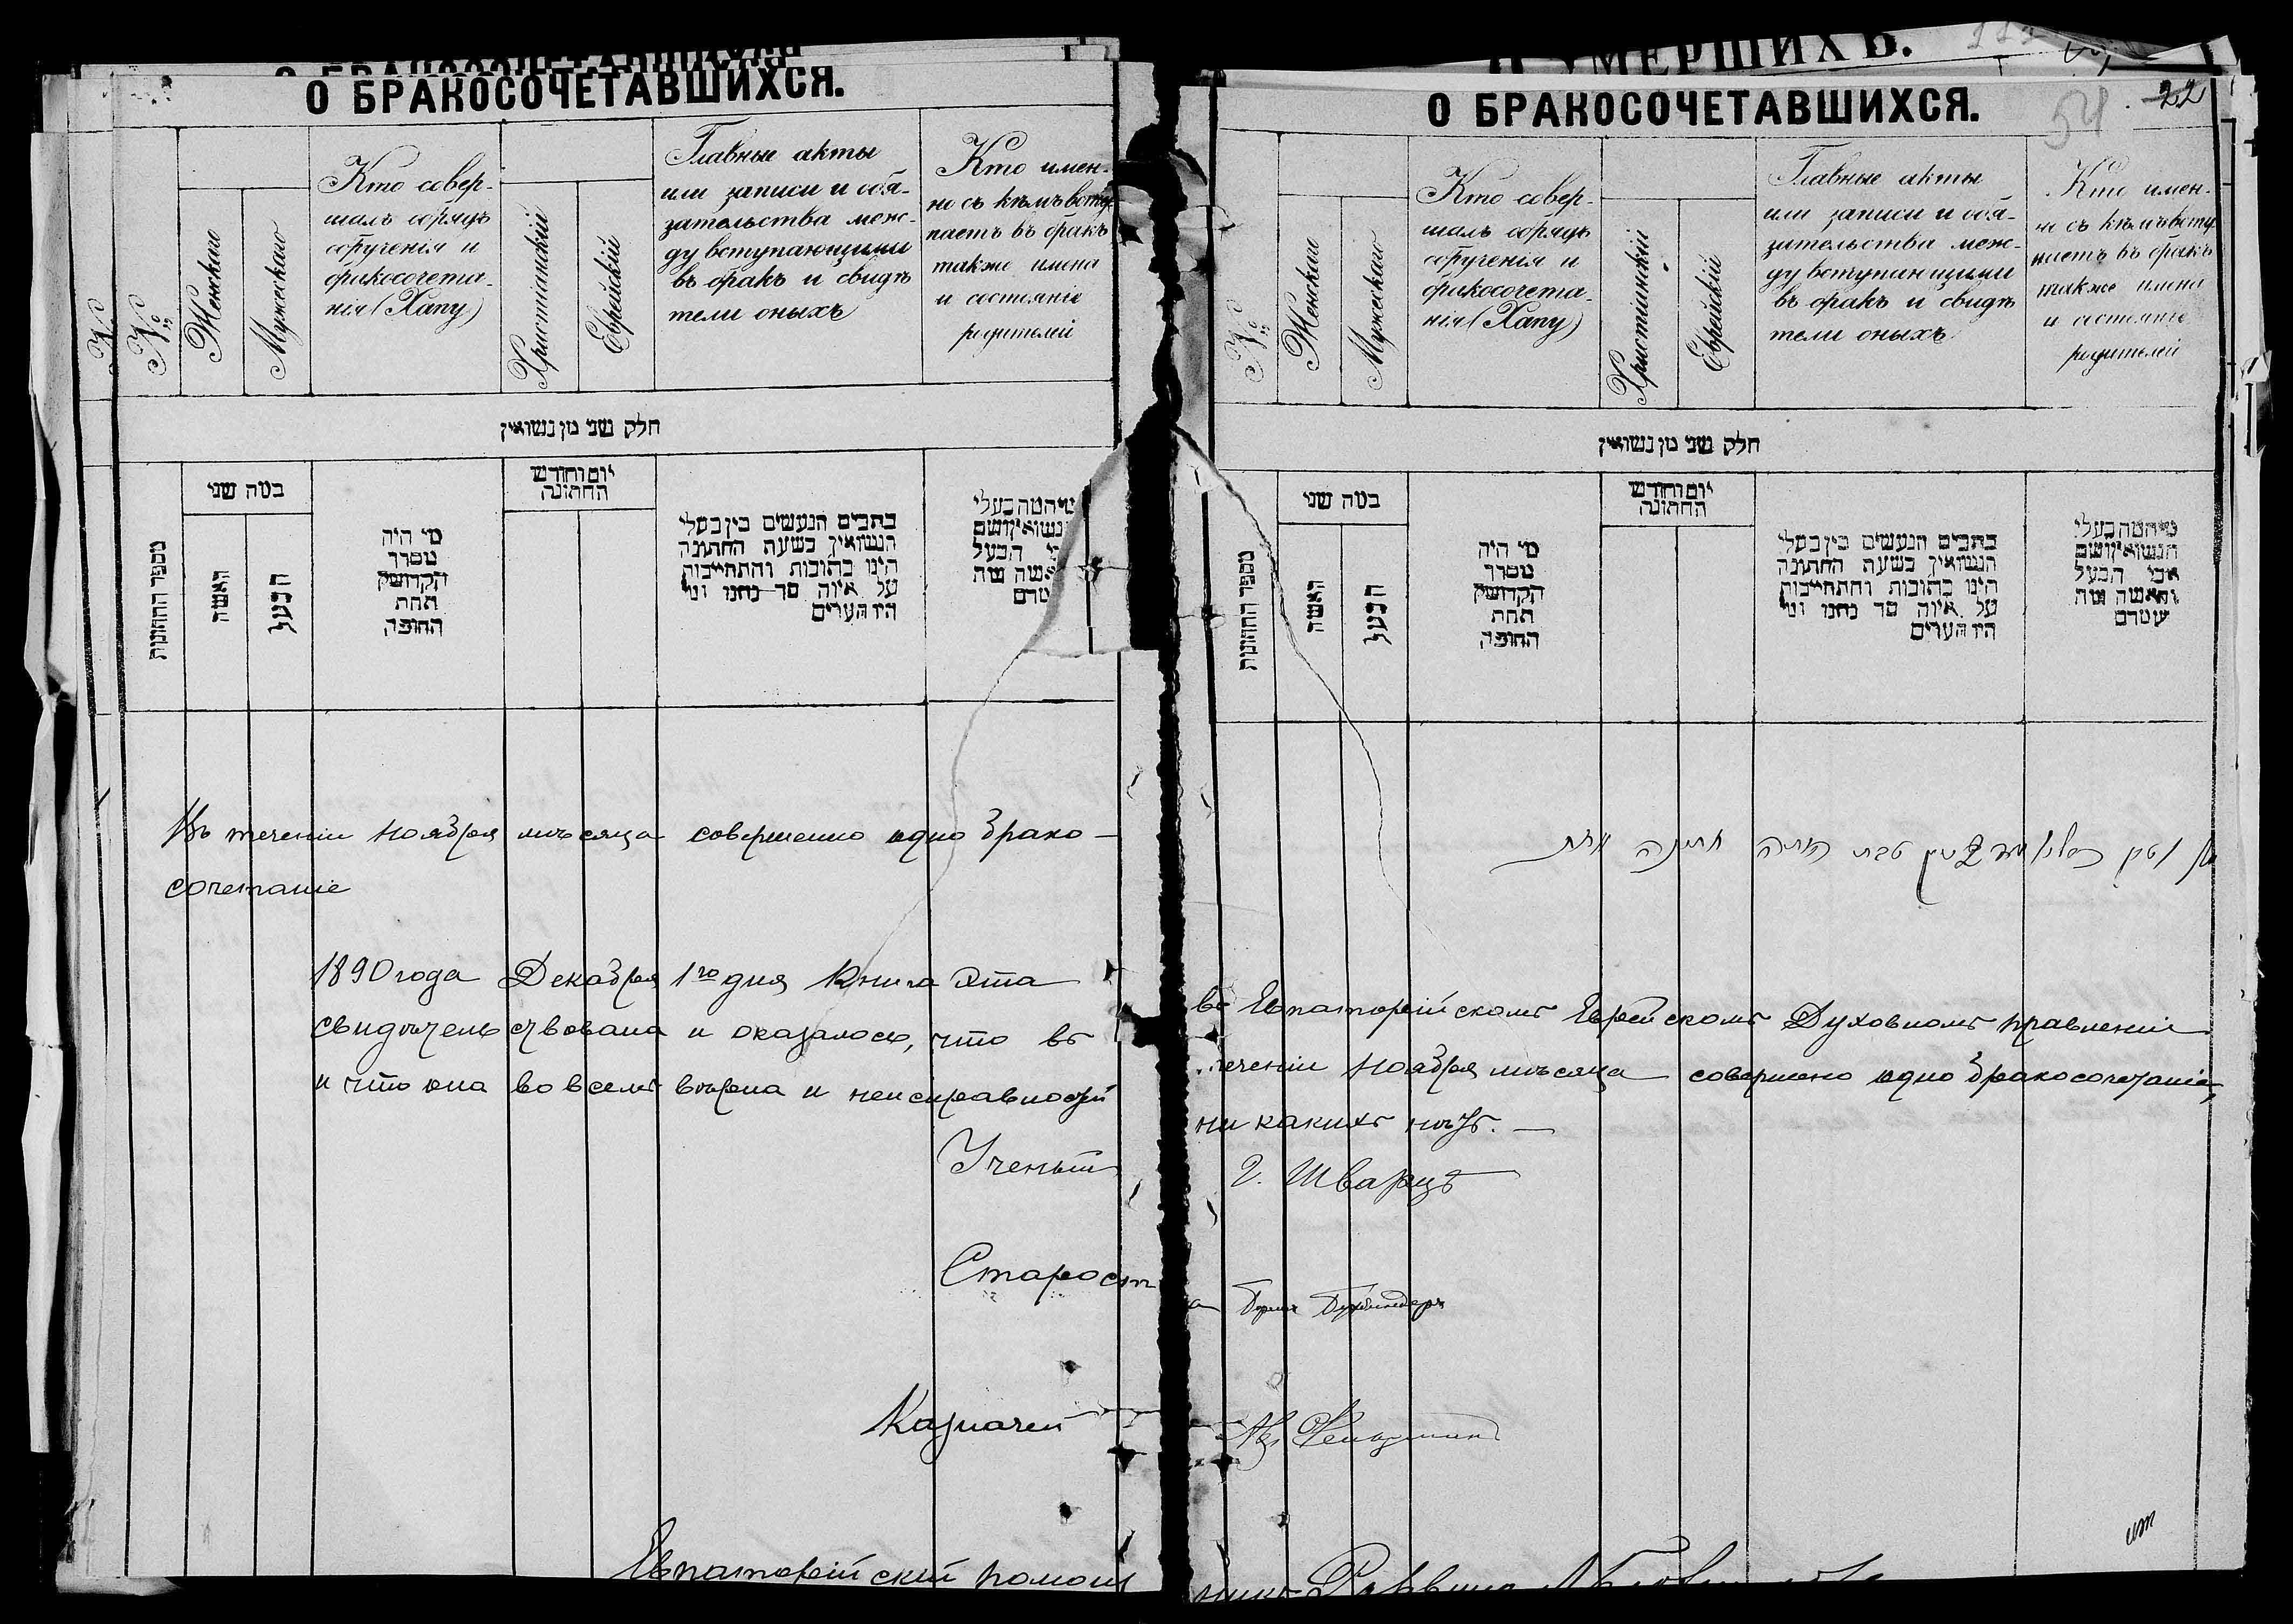 О БРАКОСОЧЕТАВШИХСЯ.
№
№
Женскаго
Мужескаго
Кто совер-
шалъ обрядъ
обрученія и
бракосочета-
нія (Хапу)
Христіанскій
Еврейскій
Главные акты
или записи и обя-
зательства меж-
ду вступающими
въ бракъ и свидѣ
тели оныхъ
Кто имен-
но съ кѣмъ вступ
паетъ въ бракъ
также имена
и состояніе
родителей
חלק שני מן נשואין
מספר החתונות
כמה שני
האשה
הבעל
מי היה
מסדר
הקדושין
תחת
החופה
יום וחודש
החתונה
כתבים הנעשים בין בעלי
הנשואין בשעת החתונה
היינו כתובות והתחייבות
על איזה סך נתנו ומי
היו העדים
Въ теченіи Ноября мѣсяца совершено одно брако-
сочетаніе
1890 года Декабря 1го дня Книга эта
свидѣтельствована и оказалось, что въ
и что она во всемъ вѣрна и неисправностей
Ученый
Старост
Казначей
Евпаторійскій помощ
УМЕРШИХЪ.
О БРАКОСОЧЕТАВШИХСЯ.
54
22
№
Женскаго
Мужескаго
Кто совер-
шалъ обрядъ
обрученія и
бракосочета-
нія (Хапу)
Христіанскій
Еврейскій
Главные акты
или записи и обя-
зательства меж-
ду вступающими
въ бракъ и свидѣ
тели оныхъ
Кто имен-
но съ кѣмъ всту
паетъ въ бракъ
также имена
и состояніе
родителей
חלק שני מן נשואין
מספר החתונות
כמה שני
האשה
הבעל
מי היה
מסדר
הקדושין
תחת
החופה
יום וחודש
החתונה
כתבים הנעשים בין בעלי
הנשואין בשעת החתונה
היינו כתובות והתחייבות
על איזה סך נתנו ומי
היו העדים
מי המה בעלי
הנשואין ושם
אבי הבעל
והאשה מה
שמם
въ Евпаторійскомъ Еврейскомъ Духовномъ правленіи
теченіи Ноября мѣсяца совершено одно бракосочетаніе,
ни какихъ нѣтъ. —
Г. Шварцъ
а